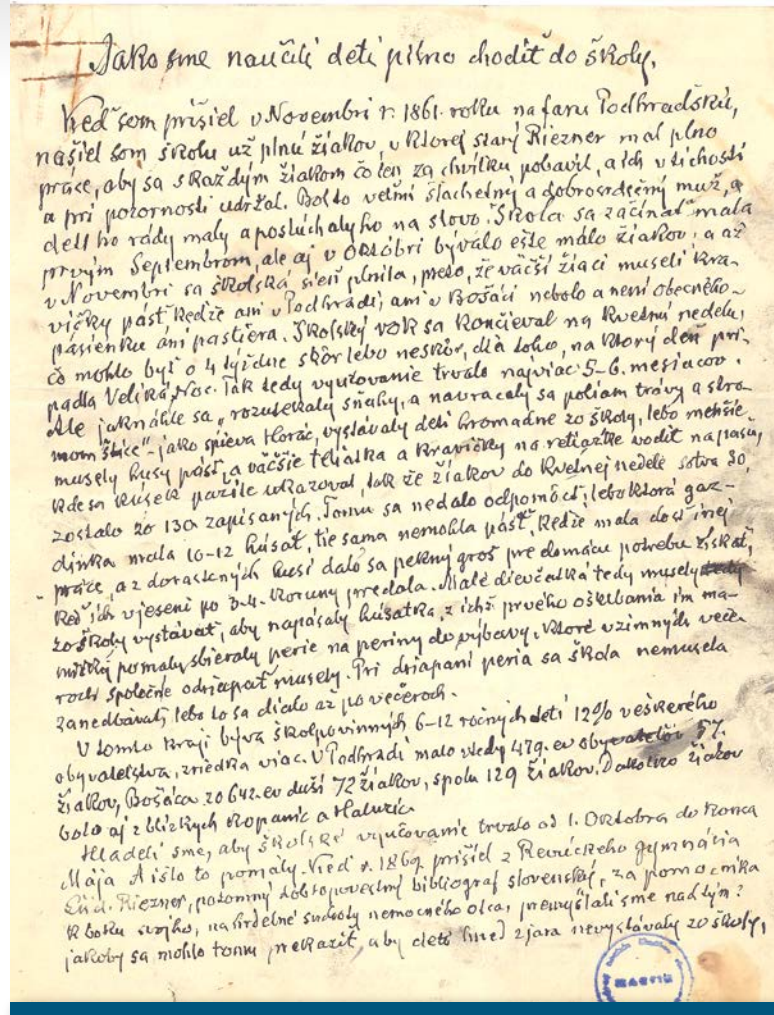 Jako sme naučili deti pilno chodiť do školy.
Keď som prišiel v Novembri r. 1861. roku na faru Podhradskú,
našiel som školu už plnú žiakov, v ktorej starý Riezner mal plno
práce, aby sa s každým žiakom čo len za chvílku pobavil, a ich v tichosti
a pri pozornosti udržal. Bol to veľmi šlachetný a dobrosrdečný muž, a
deti ho rády maly a poslúchaly ho na slovo. Škola sa začínať mala
prvým Septembrom, ale aj v Októbri bývalo ešte málo žiakov, a až
v Novembri sa školská sieň plnila, preto, že väčší žiaci museli kra-
vičky pásť, kedže ani v Podhradí, ani v Bošáci nebolo a není obecného
pasienku ani pastiera. Školský rok sa končieval na Kvetnú nedelu,
čo mohlo byť o 4 týždne skôr lebo neskôr, dla toho, na ktorý deň pri-
padla Veliká Noc. Tak tedy vyučovanie trvalo najviac 5-6. mesiacov.
Ale jaknáhle sa „rozutekaly sňahy, a navracaly sa poliam trávy a stro-
mom štice" - jako spieva Horác, vystávaly deti hromadne zo školy, lebo menšie
musely husy pásť, a väčšie teliatka a kravičky na retiazke vodiť na pašu,
kde sa kúsek pažite ukazoval, tak že žiakov do Kvetnej nedele sotva 30,
zostalo zo 130 zapísaných. Tomu sa nedalo odpomôcť, lebo ktorá gaz-
dinka mala 10-12 húsat, tie sama nemohla pásť, kedže mala dosť inej
práce, a z dorastených husí dalo sa pekný groš pre domácu potrebu získať,
keď ich v jeseni po 3-4. koruny predala. Malé dievčatká tedy musely
zo školy vystávať, aby napásaly húsatka, z ichž prvého oškubania im ma-
mičky pomaly sbieraly perie na periny do výbavy, ktoré v zimných veče-
roch společne odriapať musely. Pri driapaní peria sa škola nemusela
zanedbávať, lebo to sa dialo až po večeroch.
V tomto kraji býva školpovinných 6-12 ročných detí 12% veškerého
obyvatelstva, zriedka viac. V Podhradí malo vtedy 479. ev obyvatelov 57.
žiakov, Bošáca zo 642. ev duší 72 žiakov, spolu 129 žiakov. Dakolko žiakov
bolo aj z blízkych kopaníc a Haluzíc.
Hladeli sme, aby školské vyučovanie trvalo od 1. Októbra do konca
Mája. A išlo to pomaly. Keď r. 1869 prišiel z Revúckeho gymnásia
Lud. Riezner, potomný dobropovestný bibliograf slovenský, za pomocníka
k boku svojho, na hrdelné suchoty nemocného otca, premýšlali sme nad tým?
jakoby sa mohlo tomu prekaziť, aby deti hneď z jara nevystávaly zo školy,